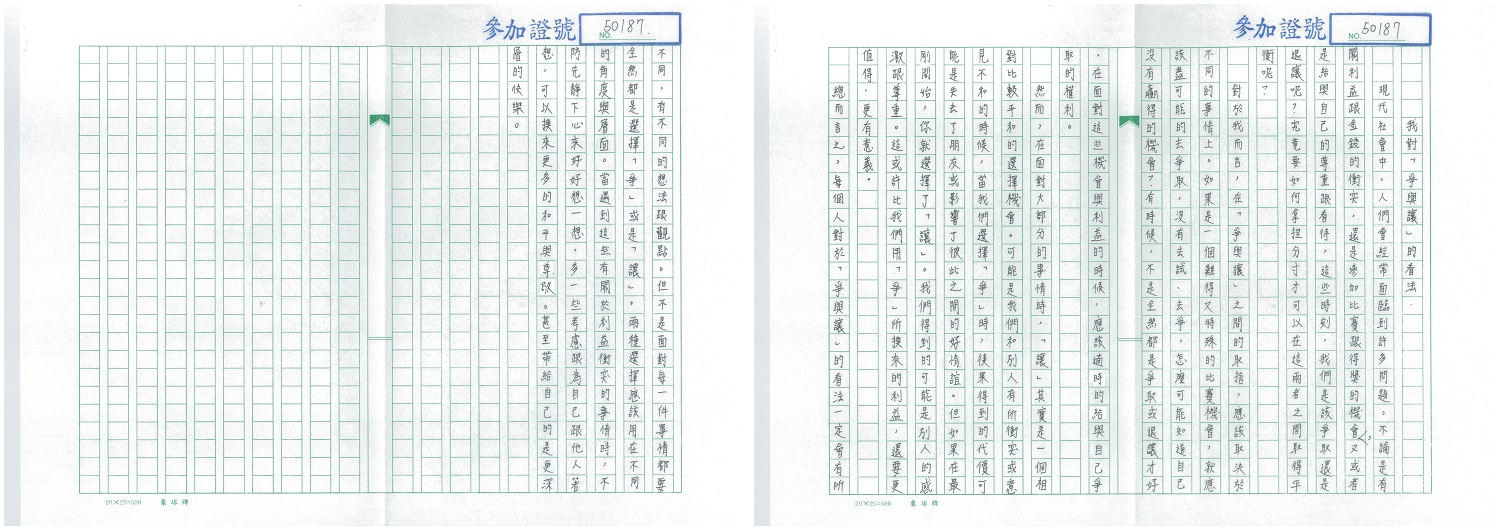 參加證號
NO. 50187
我對「爭與讓」的看法.
現代社會中，人們會經常面臨到許多問題，不論是有
關利益跟金錢的衝突，還是參加比賽跟得獎的機會，又或者
是給與自己的尊重跟看待，這些時刻，我們是該爭取還是
退讓呢？究竟要如何拿捏分寸才可以在這兩者之間取得平
衡呢？
對於我而言，在「爭與讓」之間的取捨，應該取決於
不同的事情上。如果是一個難得又特殊的比賽機會，就應
該盡可能的去爭取，沒有去試、去爭，怎麼可能知道自己
沒有贏得的機會？有時候，不是全然都是爭取或退讓才好
，在面對這些機會與利益的時候，應該適時的給與自己爭
取的權利。
然而，在面對大部分的事情時，「讓」其實是一個相
對比較平和的選擇機會。可能是我們和別人有所衝突或意
見不和的時候，當我們選擇「爭」時，後果得到的代價可
能是失去了朋友或影響了彼此之間的好情誼。但如果在最
剛開始，你就選擇了「讓」。我們得到的可能是別人的感
激跟尊重。這或許比我們用「爭」所換來的利益，還要更
值得，更有意義。
總而言之，每個人對於「爭與讓」的看法一定會有所
20×25=500 象球牌
參加證號
NO. 50187.
不同，有不同的想法跟觀點。但不是面對每一件事情都要
全然都是選擇「爭」或是「讓」。兩種選擇應該用在不同
的角度與層面。當遇到這些有關於利益衝突的事情時，不
防先靜下心來好好想一想，多一些考慮跟為自己跟他人著
想，可以換來更多的和平與尊敬。甚至帶給自己的是更深
層的快樂。
20×25=500 象球牌